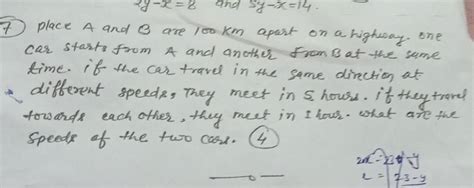 2y-x=8 and 5y-x=14.
7 place A and B are 100 km apart on a highway. one
car starts from A and another from B at the same
time. if the car travel in the same direction at
different speeds, They meet in 5 hours. if they travel
towards each other, they meet in 1 hour. what are the
speeds of the two cars. 4
x = 23-y